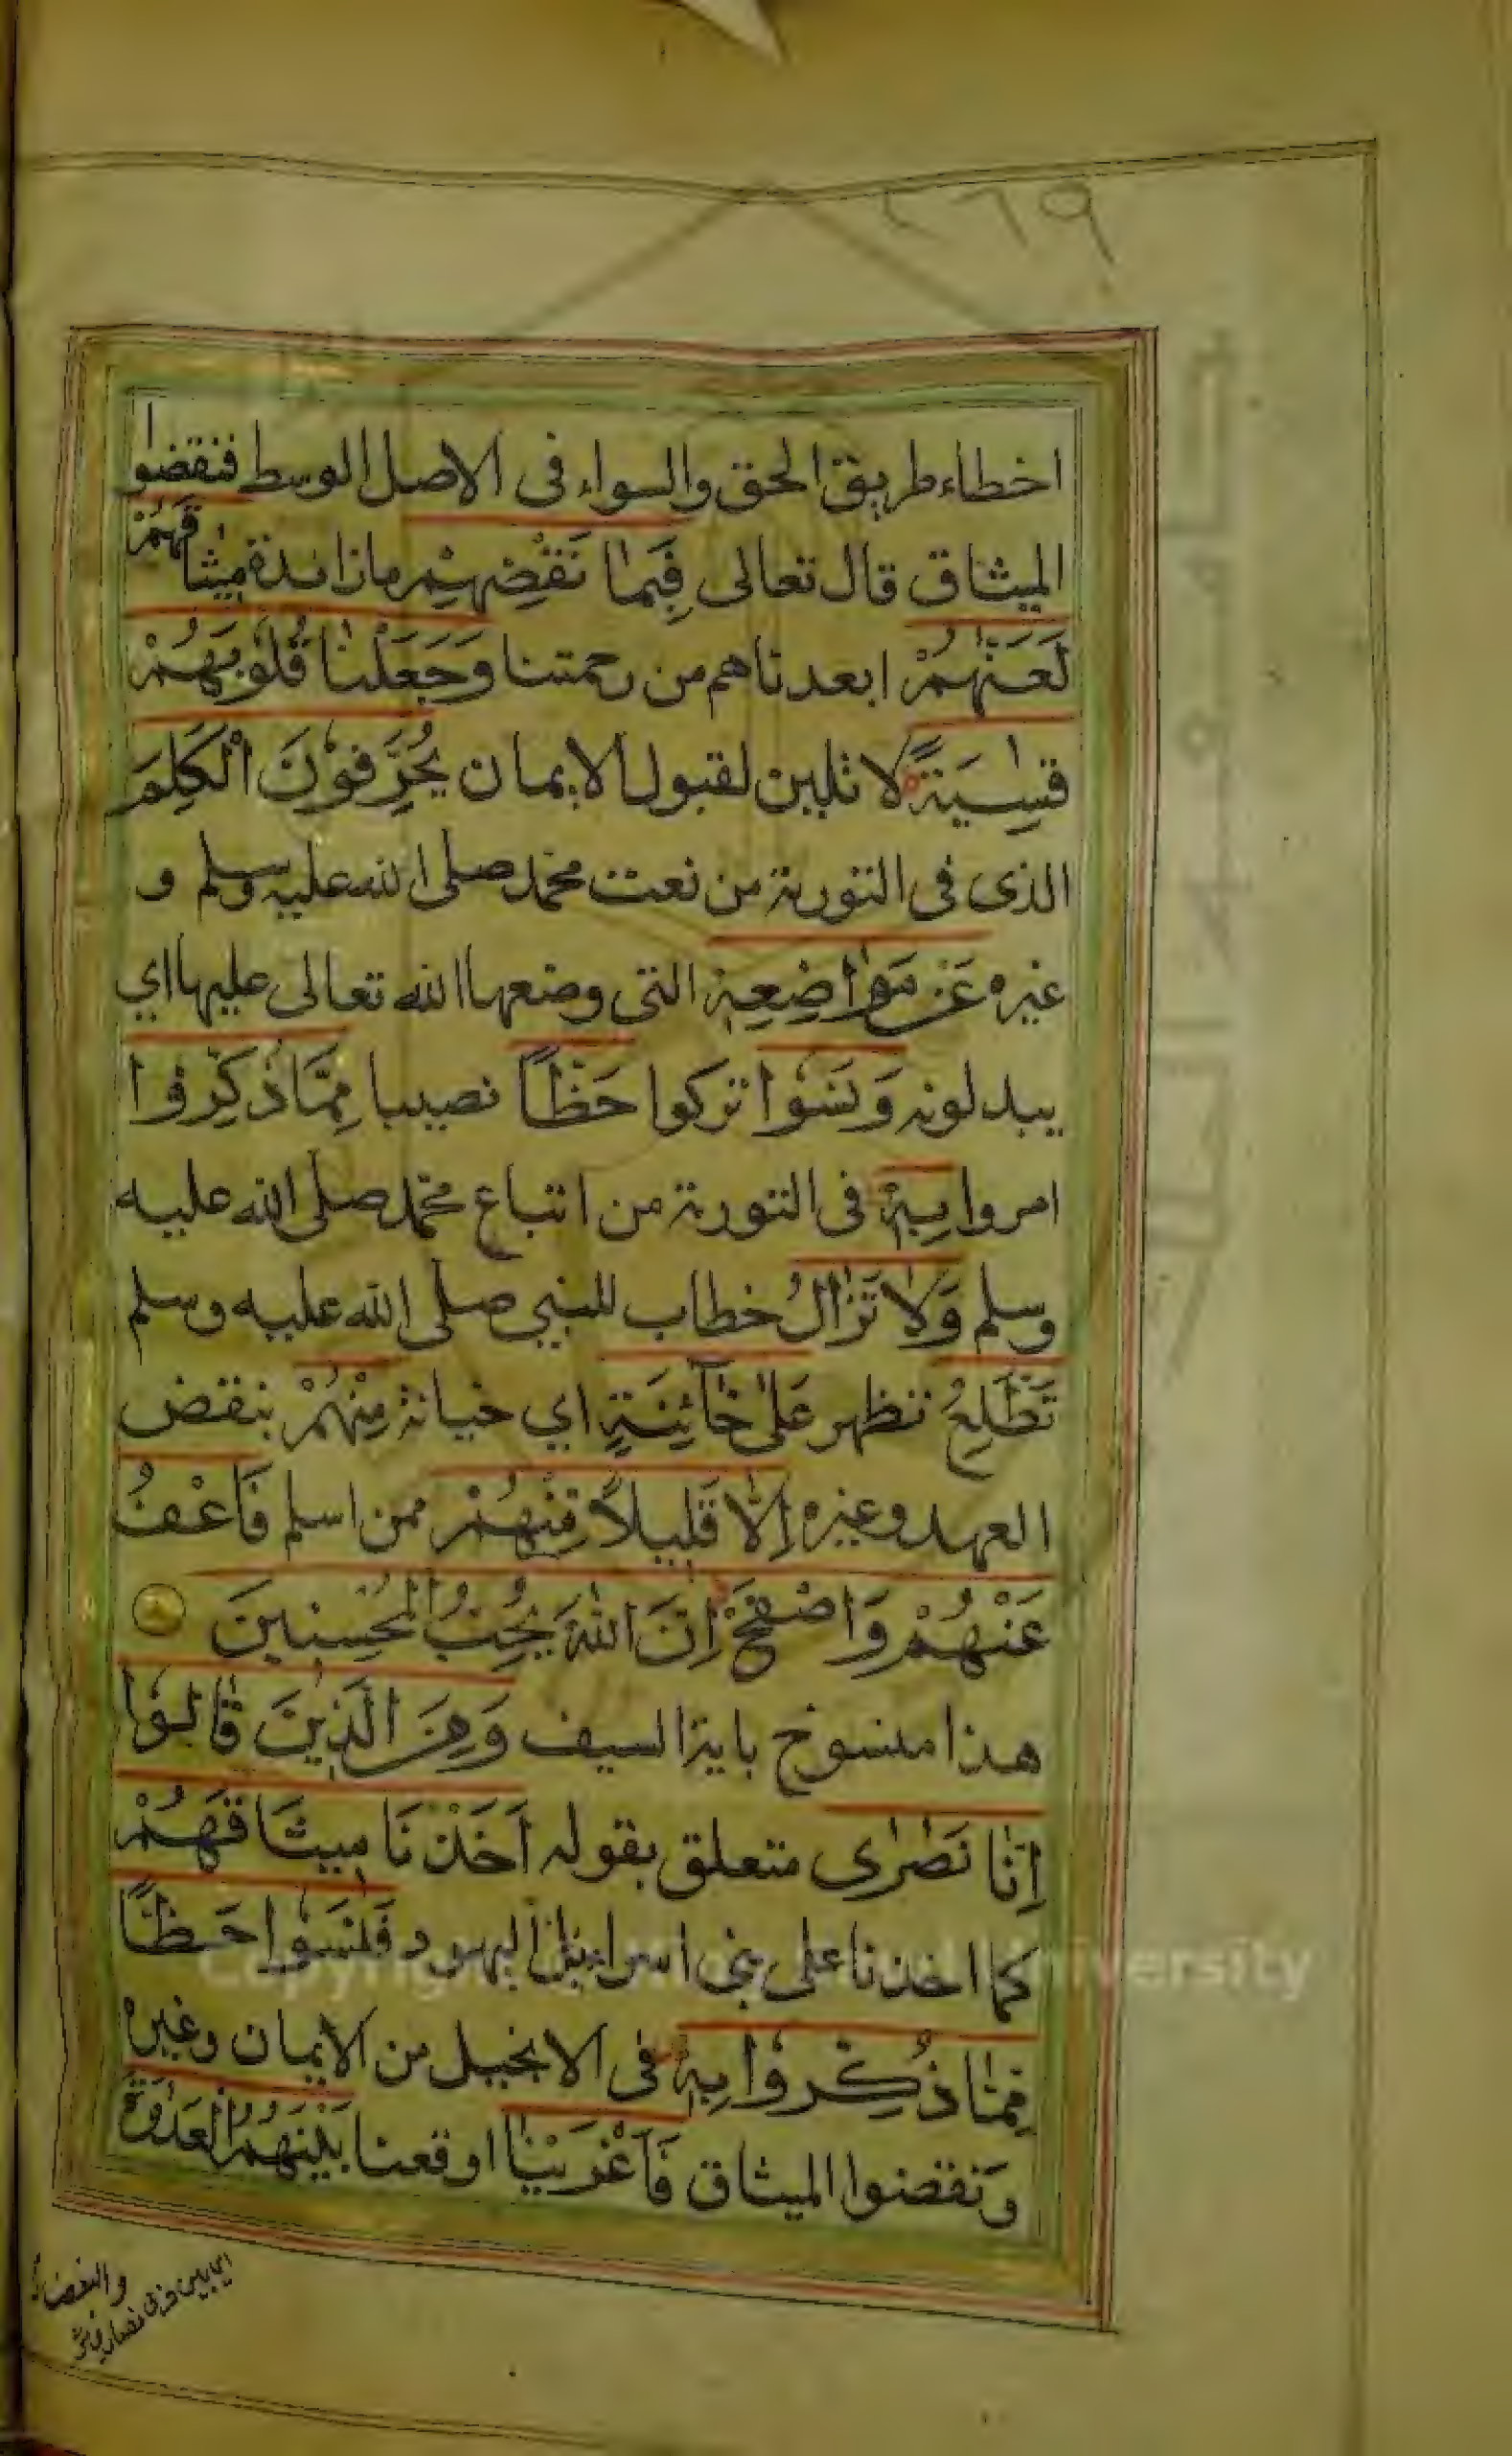 ٢٦٩
اخطاء طريق الحق والسواء في الاصل الوسط فنقضوا
الميثاق قال تعالى فَبِمَا نَقْضِهِمْ ما زائدة مِيْثَاقَهُمْ
لَعَنّٰهُمْ ابعدناهم من رحمتنا وَجَعَلْنَا قُلُوْبَهُمْ
قٰسِيَةً لا تلين لقبول الايمان يُحَرِّفُوْنَ الْكَلِمَ
الذى فى التورية من نعت محمد صلى الله عليه وسلم و
غيره عَنْ مَوَاضِعِهٖ التى وضعها الله تعالى عليها اي
يبدلونه وَنَسُوْا تركوا حَظًّا نصيبا مِمَّا ذُكِّرُوا
امروا بِهٖ فى التورية من اتباع محمد صلى الله عليه
وسلم وَلَا تَزَالُ خطاب للنبي صلى الله عليه وسلم
تَطَّلِعُ تظهر عَلٰى خَآئِنَةٍ اي خيانة مِنْهُمْ بنقض
العهد وغيره اِلَّا قَلِيلاً مِنْهُمْ ممن اسلم فَاعْفُ
عَنْهُمْ وَاصْفَحْ اِنَّ اللّٰهَ يُحِبُّ الْمُحْسِنِينَ
هذا منسوخ باية السيف وَمِنَ الَّذِيْنَ قَالُوْا
اِنَّا نَصٰرٰى متعلق بقوله اَخَذْنَا مِيثَاقَهُمْ
كما اخذنا على بنى اسرائيل اليهود فَنَسُوْا حَظًّا
مِمَّا ذُكِّرُوْا بِهٖ فى الانجيل من الايمان وغيره
ونقضوا الميثاق فَاَغْرَيْنَا اوقعنا بَيْنَهُمُ الْعَدَاوَةَ
والبغضاء
Copyright © King Saud University
جامعة الملك سعود